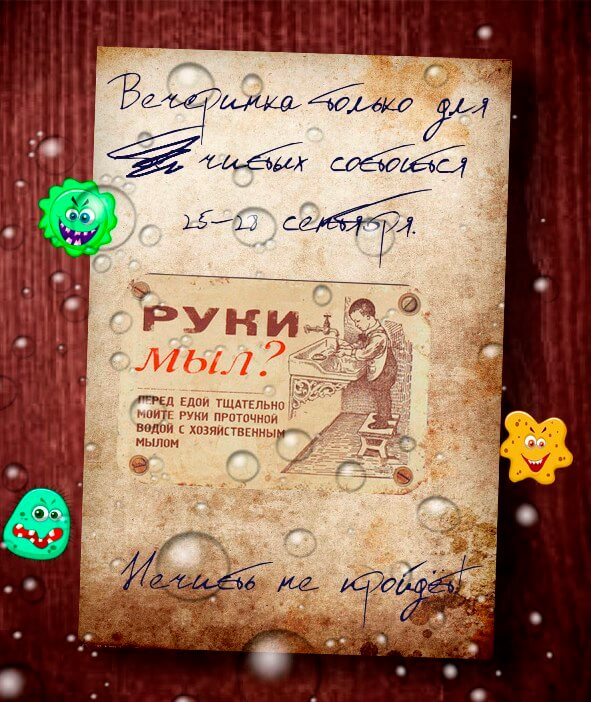 Вечеринка только для
чистых состоится
25-28 сентября.
РУКИ
МЫЛ?
ПЕРЕД ЕДОЙ ТЩАТЕЛЬНО
МОЙТЕ РУКИ ПРОТОЧНОЙ
ВОДОЙ С ХОЗЯЙСТВЕННЫМ
МЫЛОМ
Нечисть не пройдёт!